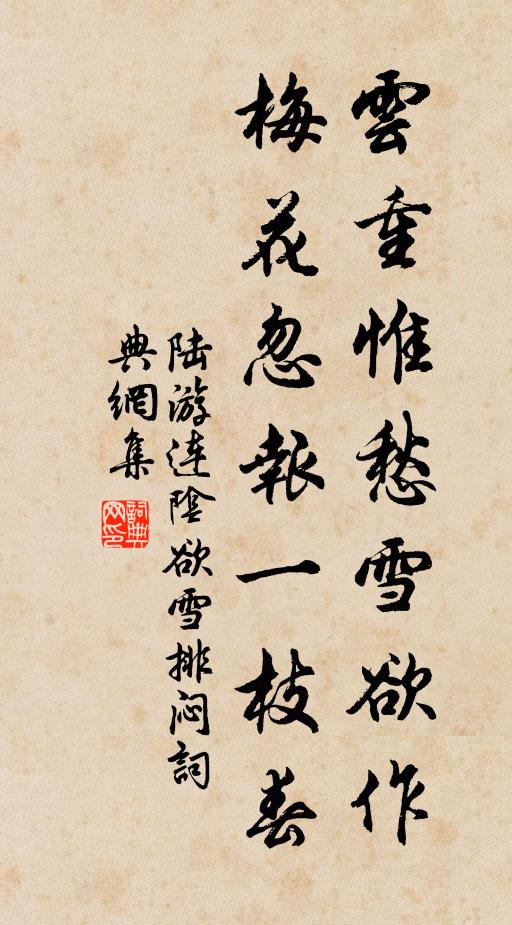 雲重惟愁雪欲作
梅花忽報一枝春
陆游连陰欲雪排闷詞
典網集
詞典网印